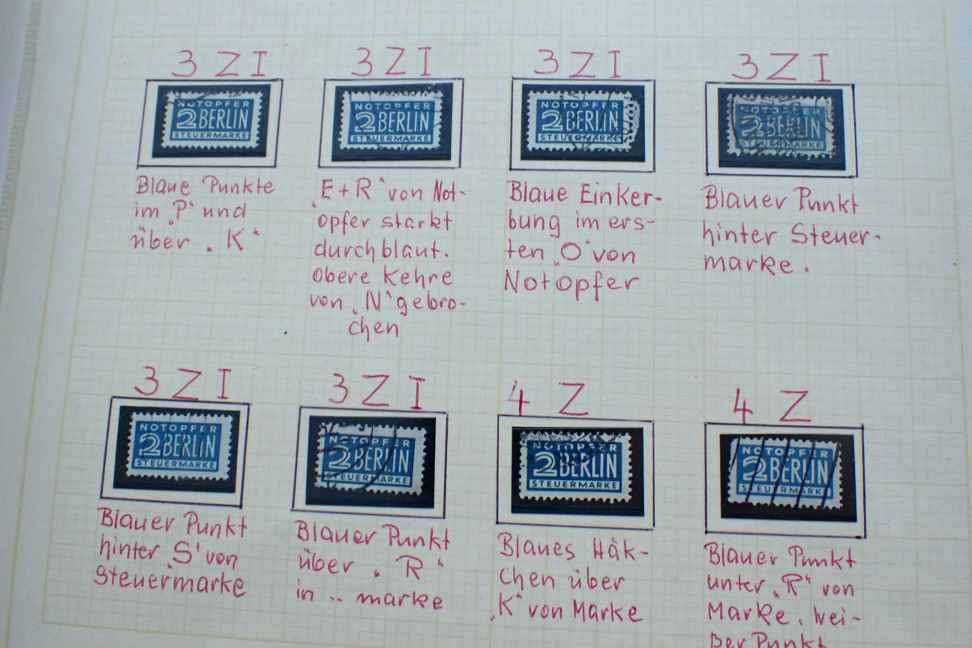 3 Z I
NOTOPFER
2 BERLIN
STEUERMARKE
Blaue Punkte
im „P" und
über „K"
3 Z I
NOTOPFER
2 BERLIN
STEUERMARKE
„E+R" von Not-
opfer starkt
durchblaut.
Obere Kehre
von „N" gebro-
chen
3 Z I
NOTOPFER
2 BERLIN
STEUERMARKE
Blaue Einker-
bung im ers-
ten „O" von
Notopfer
3 Z I
NOTOPFER
2 BERLIN
STEUERMARKE
Blauer Punkt
hinter Steuer-
marke.
3 Z I
NOTOPFER
2 BERLIN
STEUERMARKE
Blauer Punkt
hinter „S" von
Steuermarke
3 Z I
NOTOPFER
2 BERLIN
STEUERMARKE
Blauer Punkt
über „R"
in .. marke
4 Z
NOTOPFER
2 BERLIN
STEUERMARKE
Blaues Häk-
chen über
„K" von Marke
4 Z
NOTOPFER
2 BERLIN
STEUERMARKE
Blauer Punkt
unter „R" von
Marke. Wei-
ßer Punkt